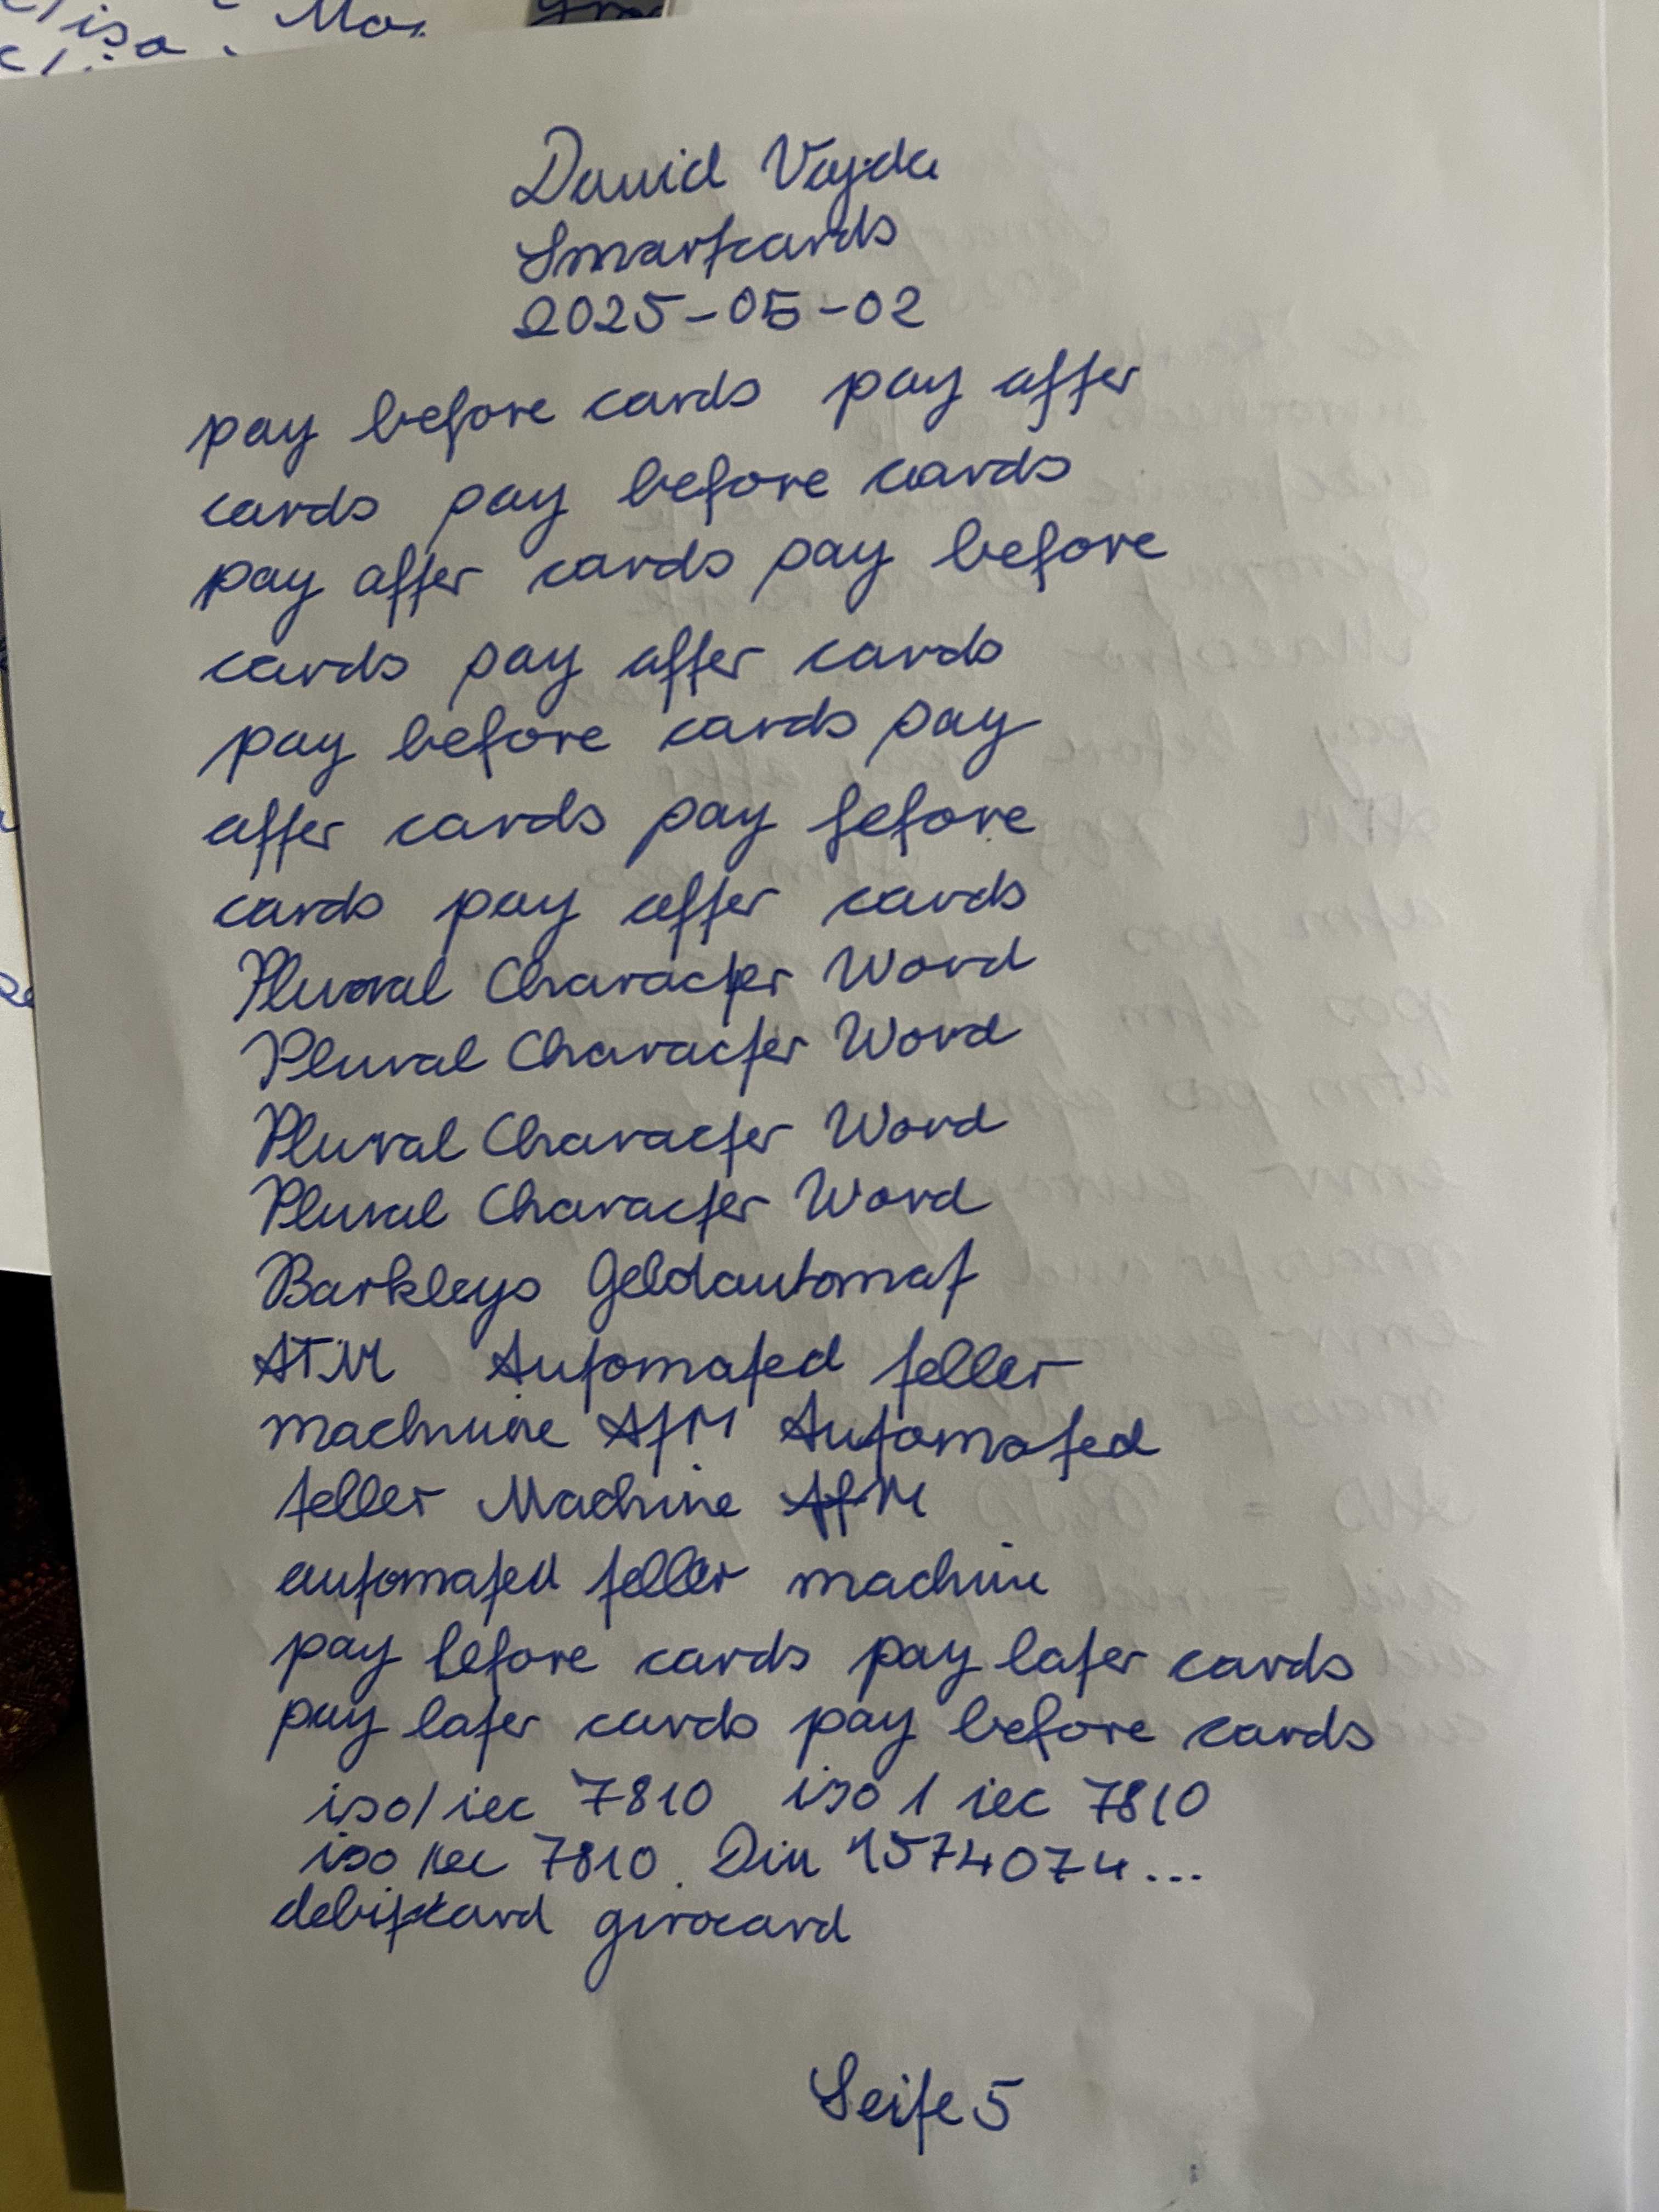 isa. Ma
David Vajda
Smartcards
2025-05-02
pay before cards pay after
cards pay before cards
pay after cards pay before
cards pay after cards
pay before cards pay
after cards pay before
cards pay after cards
Plural Character Word
Plural Character Word
Plural Character Word
Plural Character Word
Barkleys Geldautomat
ATM Automated teller
machnine ATM Automated
teller Machine ATM
automated teller machine
pay before cards pay later cards
pay later cards pay before cards
iso/iec 7810 iso / iec 7810
iso/iec 7810. Din 1574074...
debitkard girocard
Seite 5